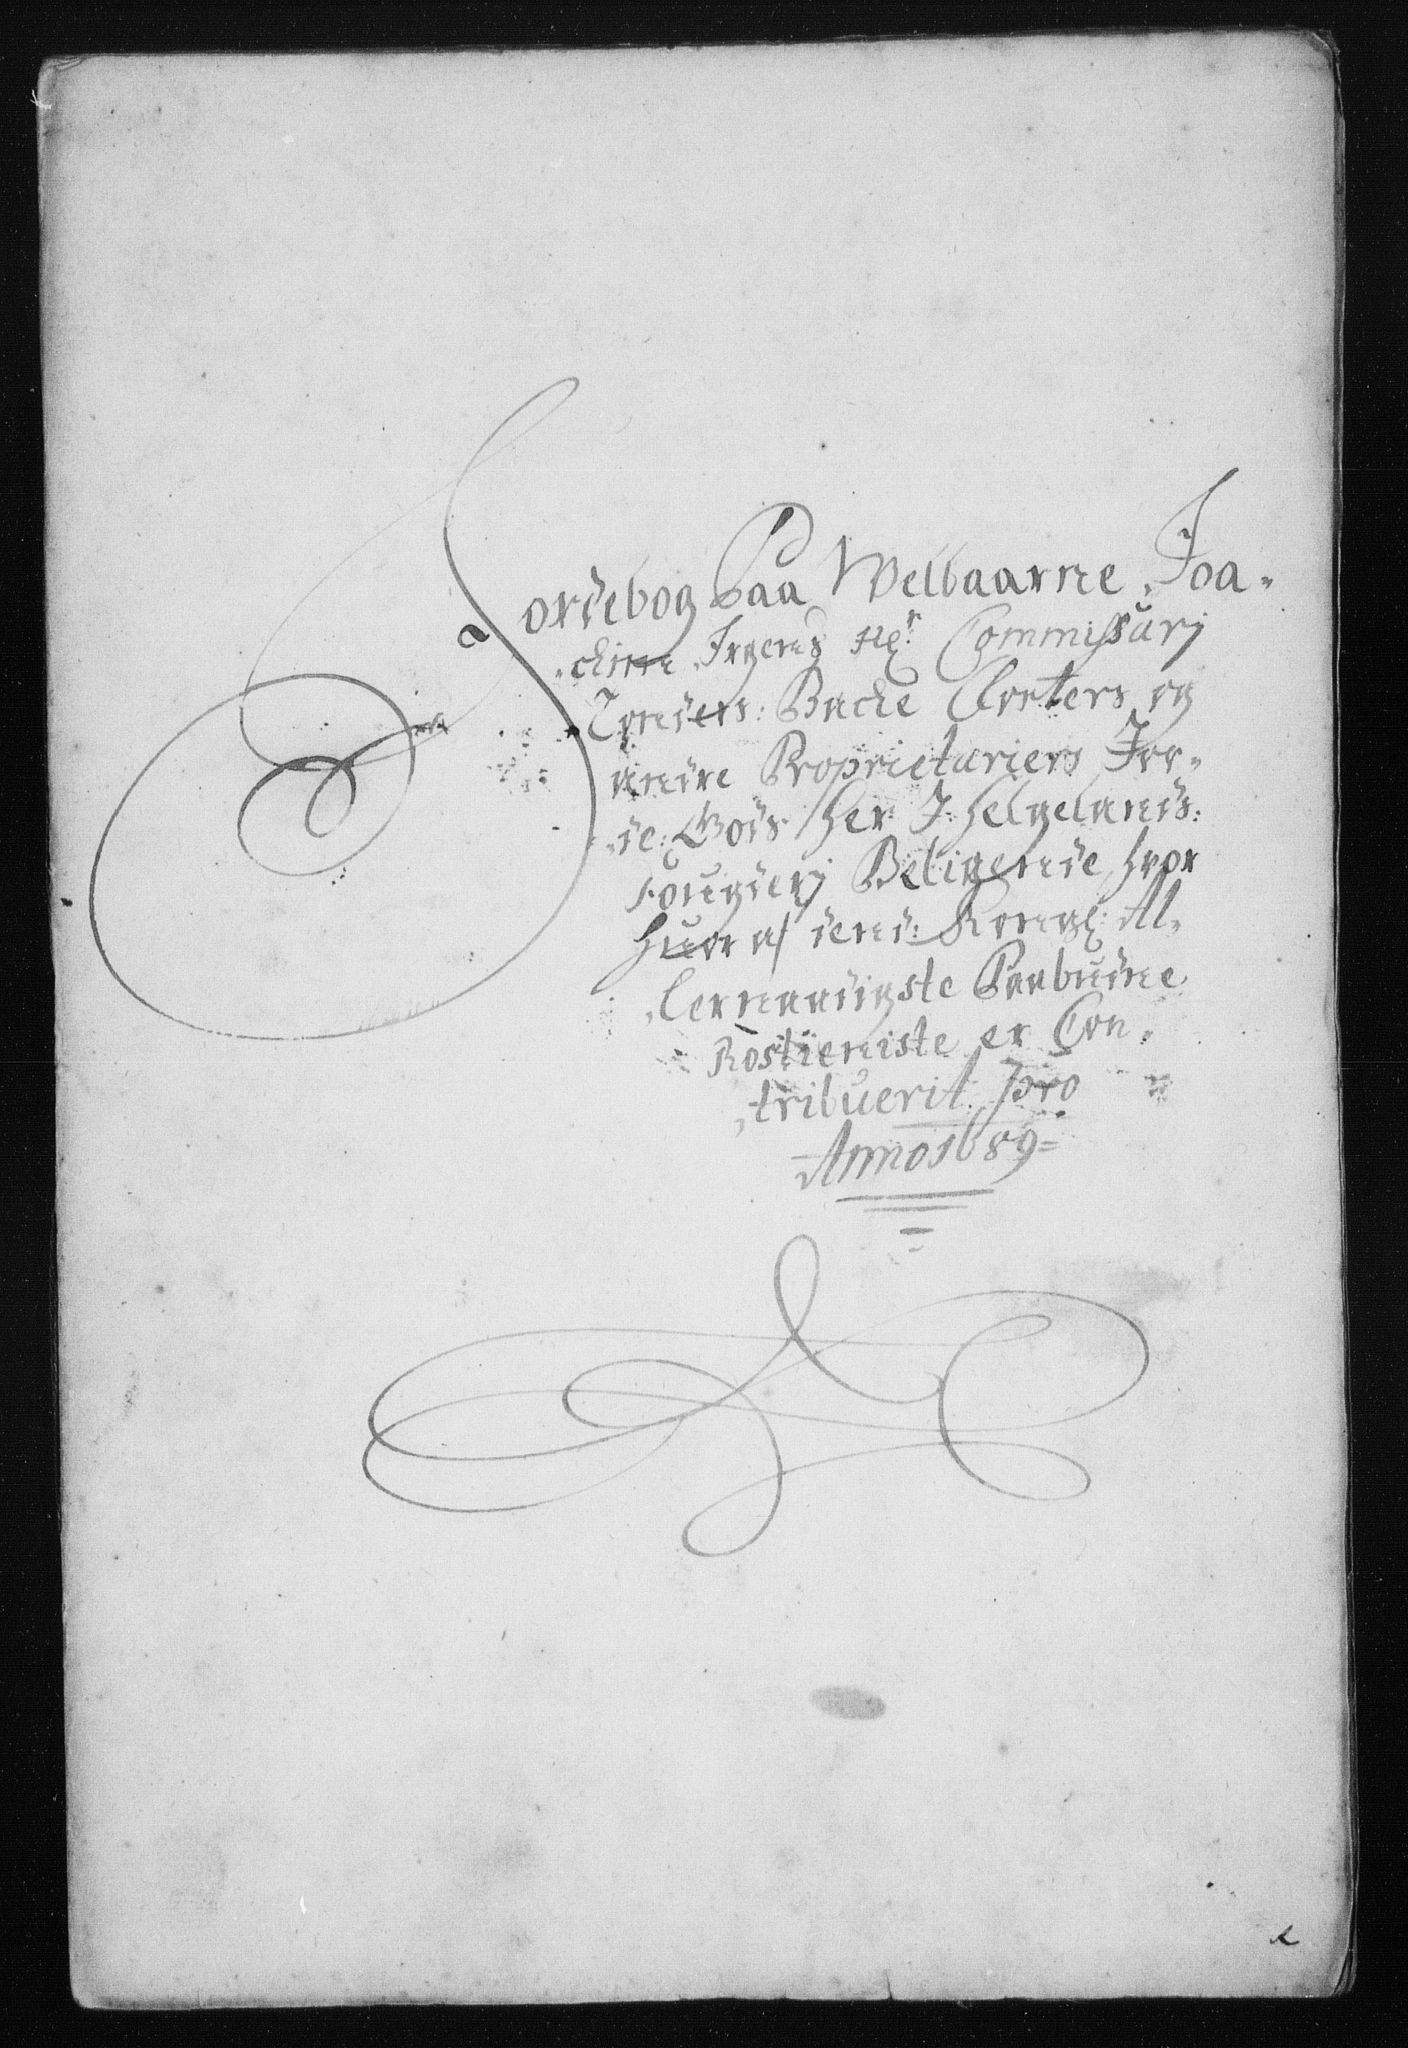 Jordebog Paa Welbaarne Joa-
chim Irgens Hr. Commissarj
Tonders: Bache Corters og
andre Proprietariers Jor-
de: Gods her J: helgelands:
fougderj Beligende, hvor
huor af dend: Kongl: Al-
lernaadigste Paabudne
Rostieniste er Con-
tribuerit pro
Anno 1689=